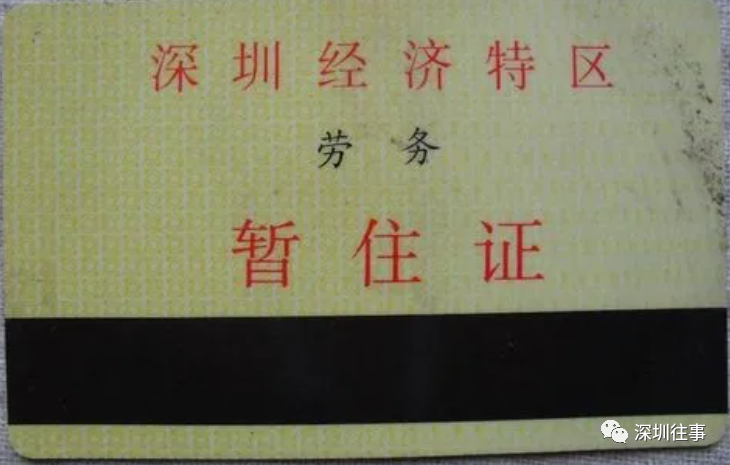 深圳经济特区
劳务
暂住证
深圳往事